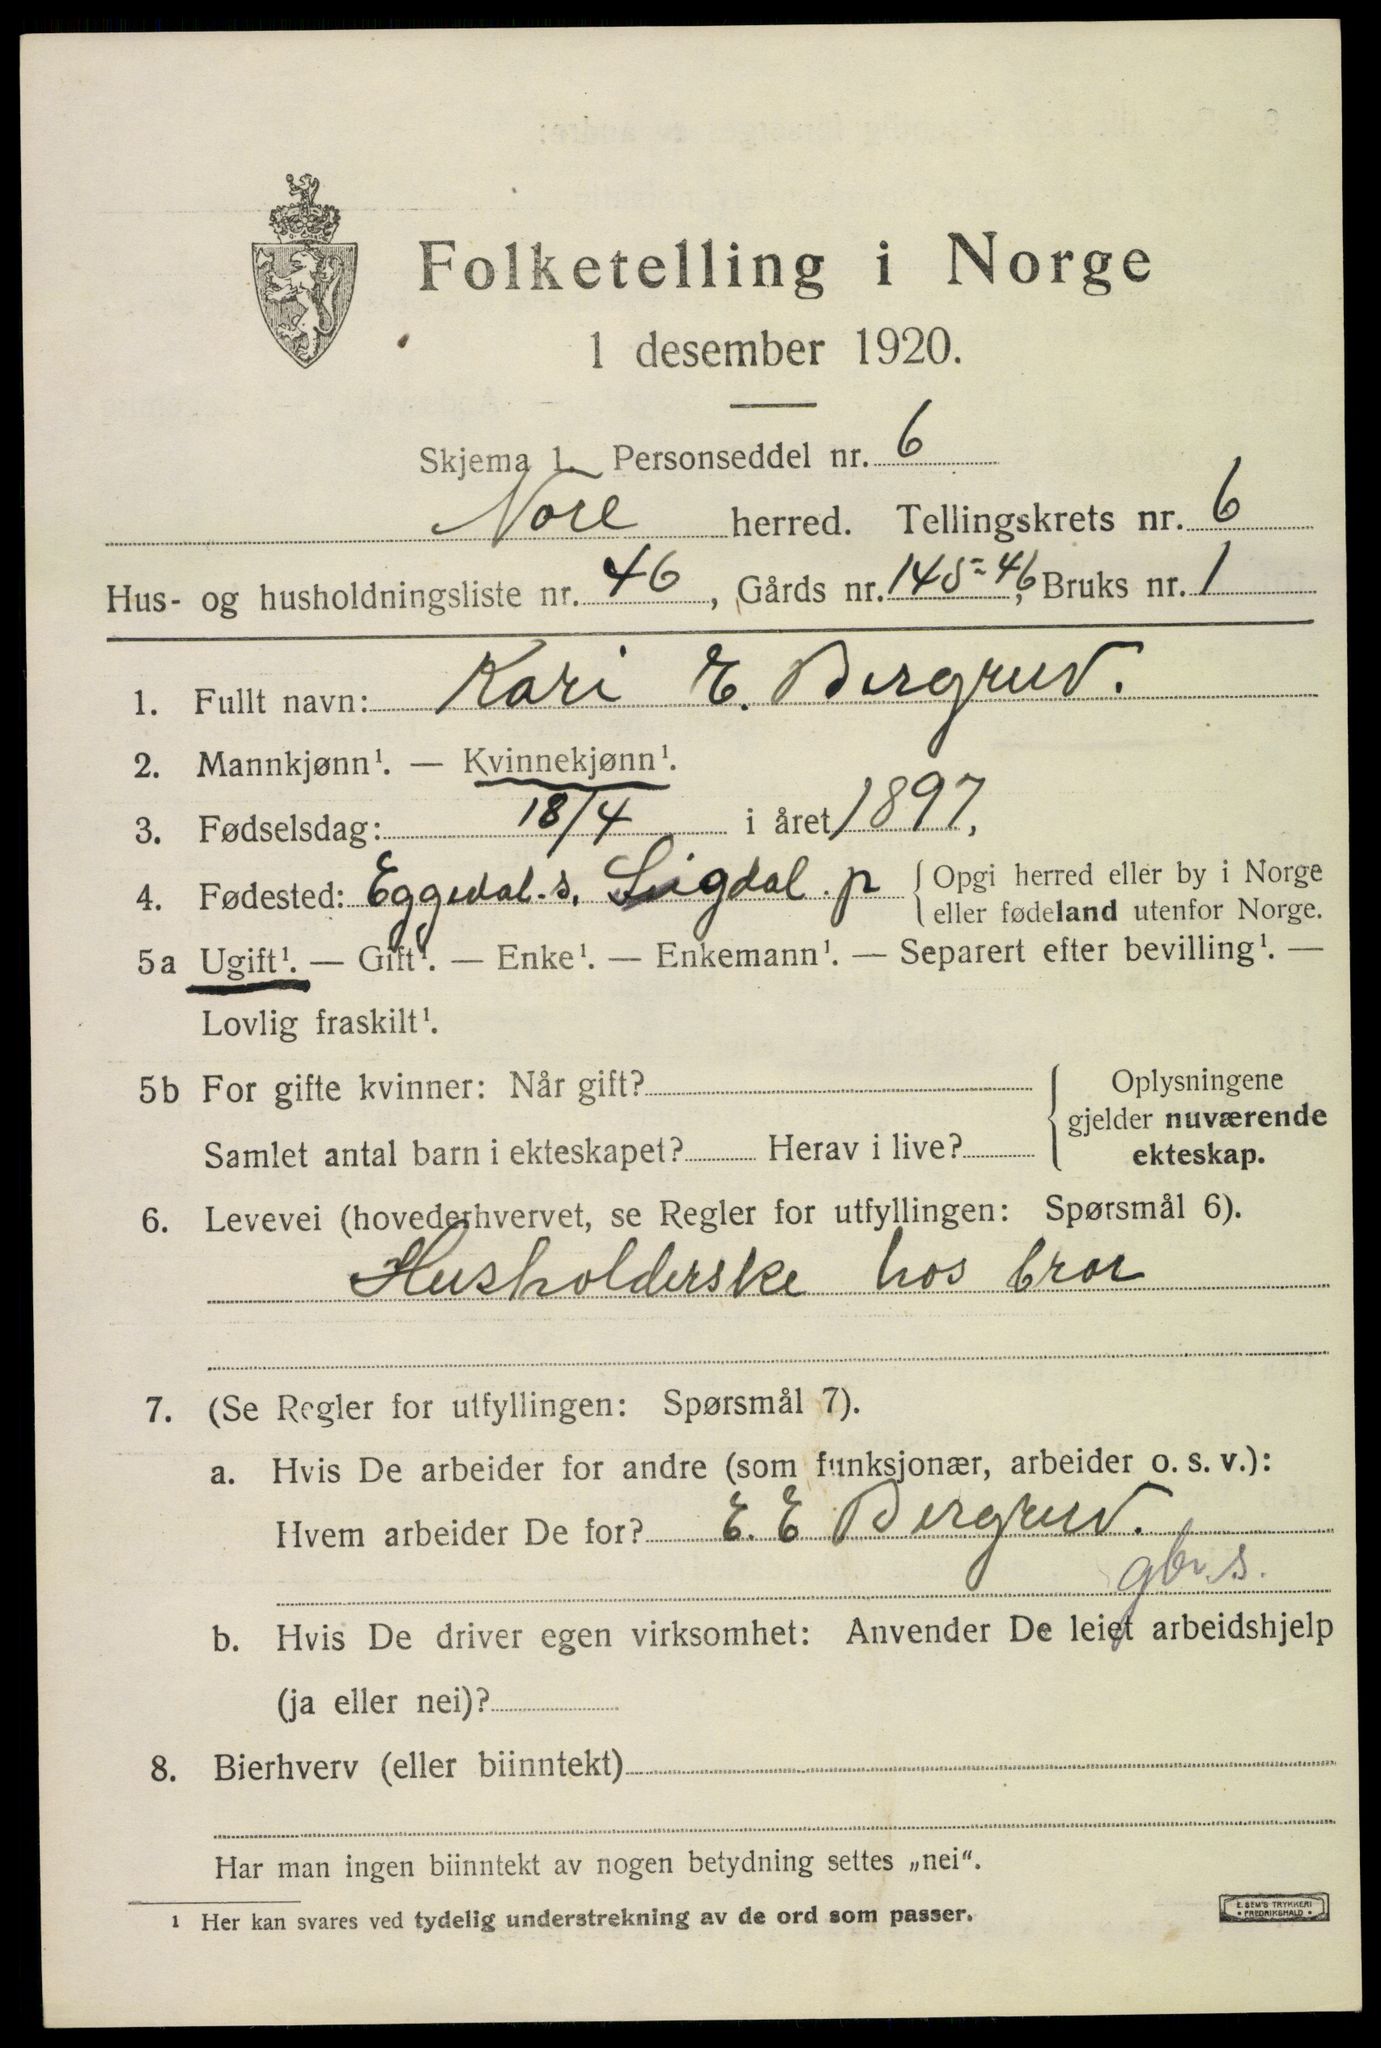 Folketelling i Norge
1 desember 1920.
Skjema 1. Personseddel nr. 6
Nore herred. Tellingskrets nr. 6
Hus- og husholdningsliste nr. 46, Gårds nr. 145-46, Bruks nr. 1
1. Fullt navn: Kari E. Bergrud.
2. Mannkjønn¹. — Kvinnekjønn¹.
3. Fødselsdag: 18/4 i året 1897,
4. Fødested: Eggedal. s. Sigdal. p { Opgi herred eller by i Norge
eller fødeland utenfor Norge.
5a Ugift¹. — Gift¹. — Enke¹. — Enkemann¹. — Separert efter bevilling¹. —
Lovlig fraskilt¹.
5b For gifte kvinner: Når gift? { Oplysningene
gjelder nuværende
Samlet antal barn i ekteskapet? Herav i live? ekteskap.
6. Levevei (hovederhvervet, se Regler for utfyllingen: Spørsmål 6).
Husholderske hos bror
7. (Se Regler for utfyllingen: Spørsmål 7).
a. Hvis De arbeider for andre (som funksjonær, arbeider o. s. v.):
Hvem arbeider De for? E. E Bergrud.
gbr.s.
b. Hvis De driver egen virksomhet: Anvender De leiet arbeidshjelp
(ja eller nei)?
8. Bierhverv (eller biinntekt)
Har man ingen biinntekt av nogen betydning settes „nei“.
¹ Her kan svares ved tydelig understrekning av de ord som passer.
E. SEM'S TRYKKERI
• FREDRIKSHALD •